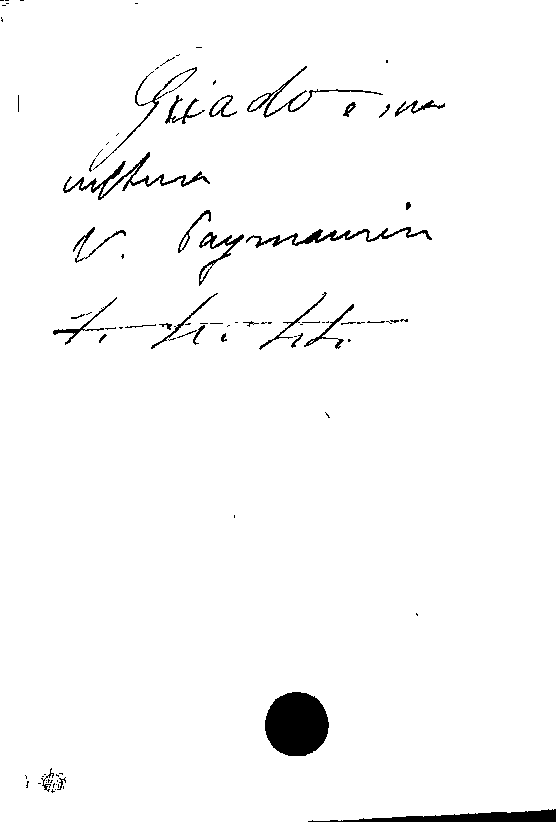 Griado e sua
cultura
V. Paymaurin